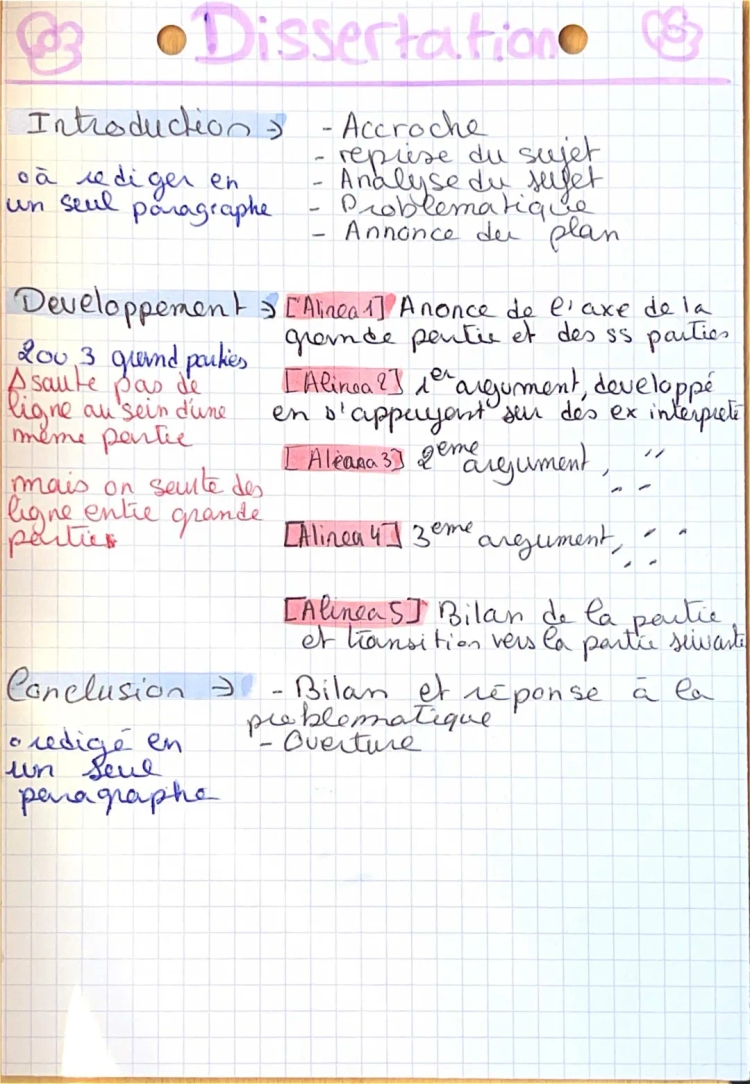 Dissertation
Introduction → - Accroche
- reprise du sujet
- Analyse du sujet
- Problematique
- Annonce du plan
o à rediger en
un seul paragraphe
Developpement → [Alinea 1] Anonce de l'axe de la
grande partie et des ss parties
2 ou 3 grand parties
⚠ saute pas de
ligne au sein d'une
même partie
mais on saute des
ligne entre grande
parties
[Alinea 2] 1er argument, developpé
en s'appuyant sur des ex interpreté
[Aléana 3] 2eme argument, " "
[Alinea 4] 3eme argument, " "
[Alinea 5] Bilan de la partie
et transition vers la partie suivante
Conclusion → - Bilan et réponse à la
problematique
- Ouverture
o redigé en
un seul
paragraphe